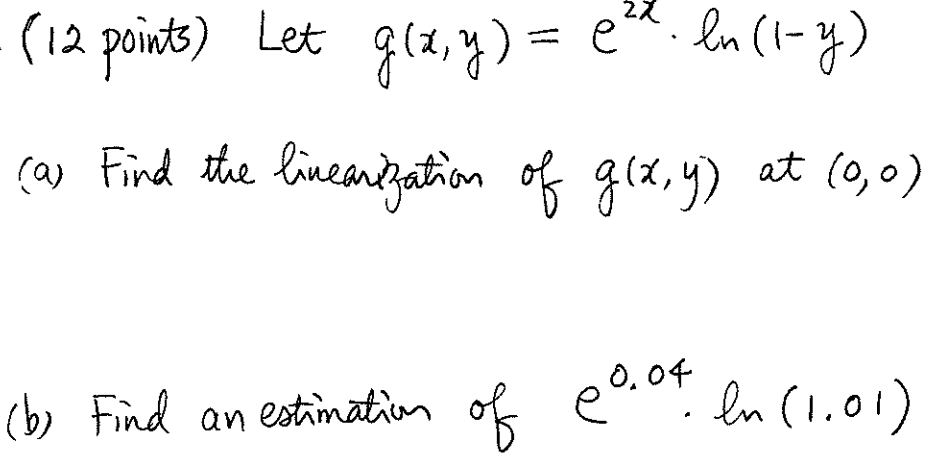 (12 points) Let g(x,y) = e^{2x} · ln(1-y)
(a) Find the linearization of g(x,y) at (0,0)
(b) Find an estimation of e^{0.04} · ln(1.01)